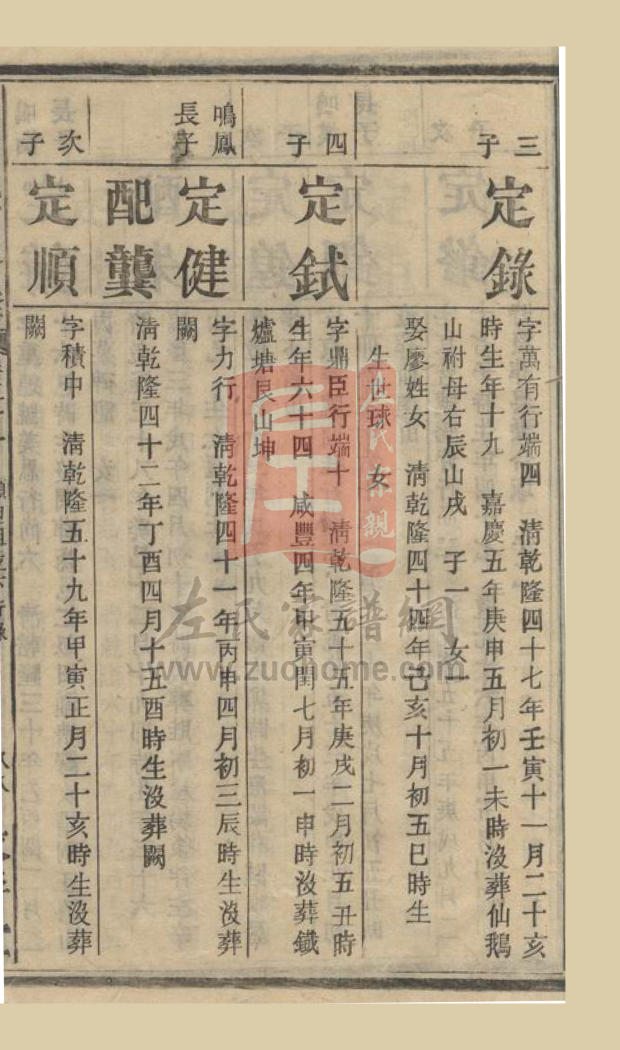 三子
定錄
字萬有行端四　清乾隆四十七年壬寅十一月二十亥
時生年十九　嘉慶五年庚申五月初一未時沒葬仙鵝
山祔母右辰山戌　子一　女一
娶廖姓女　清乾隆四十四年己亥十月初五巳時生
生世球　女
四子
定鉽
字鼎臣行端十　清乾隆五十五年庚戌二月初五丑時
生年六十四　咸豐四年甲寅閏七月初一申時沒葬鐵
爐塘艮山坤
鳴鳳長子
定健
字力行　清乾隆四十一年丙申四月初三辰時生沒葬
闕
配龔
清乾隆四十二年丁酉四月十五酉時生沒葬闕
次子
定順
字積中　清乾隆五十九年甲寅正月二十亥時生沒葬
闕
左氏家譜網
www.zuohome.com